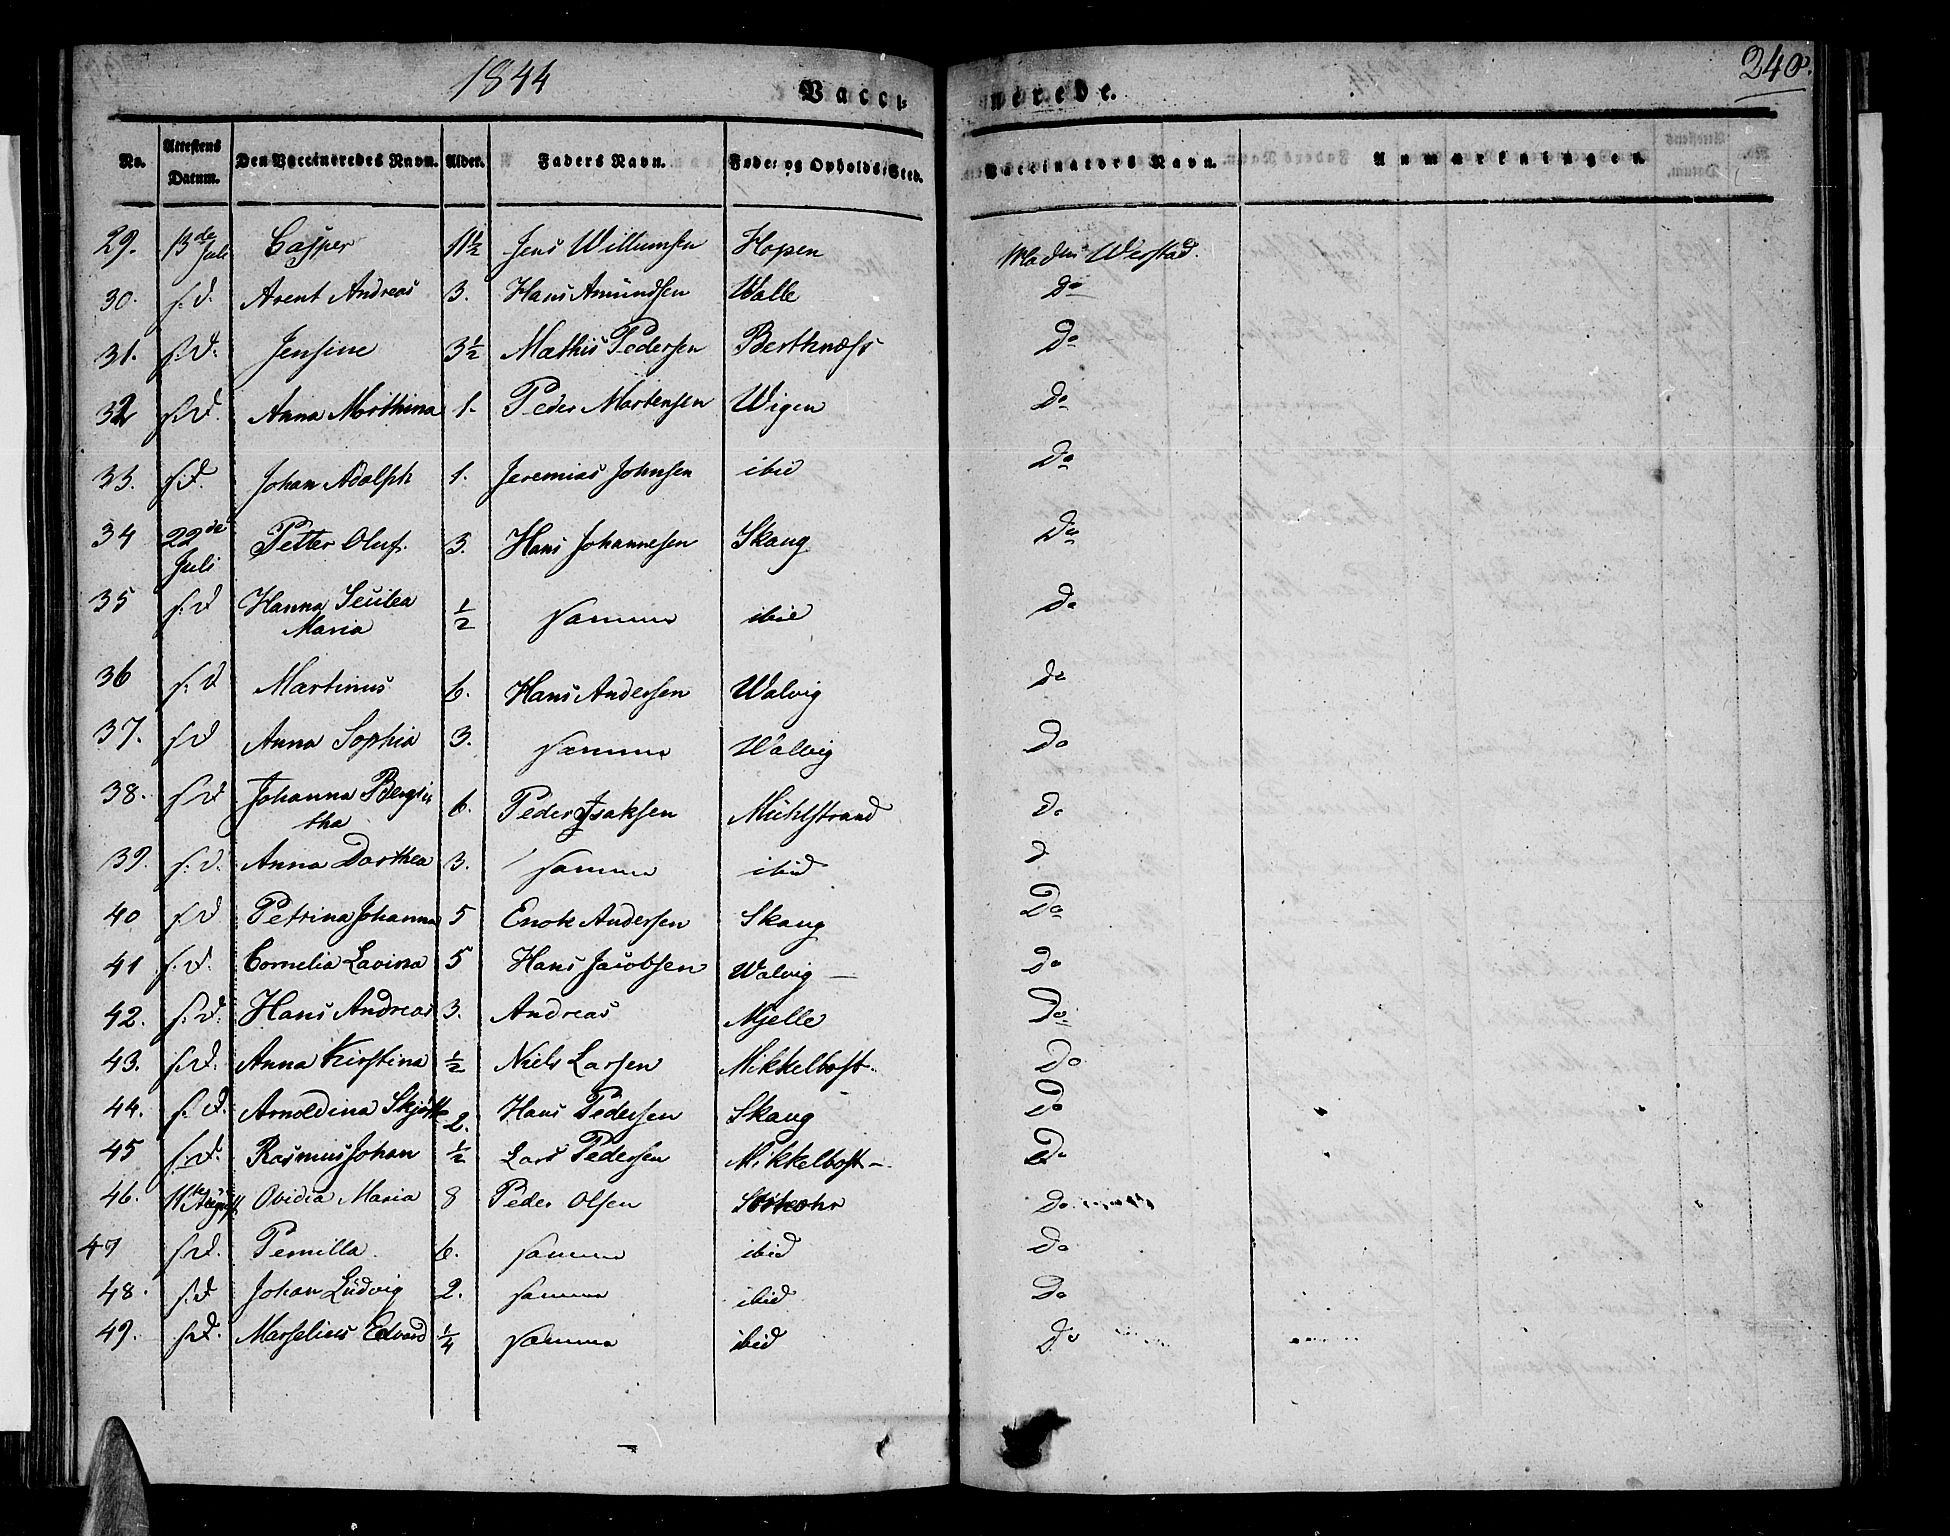 1844 Vacci- nerede. 240.
No. Attestens Datum. Den Vaccineredes Navn. Alder. Faders Navn. Føde- og Opholds-Sted. Vaccinators Navn. Anmærkningen.
29. 13de Juli Casper 11½ Jens Willumsen Hopen Werstad.
30. s. d. Arent Andreas 3. Hans Amundsen Walle Do
31. s. d. Jensine 3½ Mathis Pedersen Berthnæss Do
32 s. d. Anna Morthina 1. Peder Mortensen Wigen Do
33. s. d. Johan Adolph 1. Jeremias Johnsen ibid Do
34 22de Juli Petter Oluf. 3. Hans Johannesen Skaug Do
35 s. d Hanna ½ samme ibid Do
Maria
36 s. d Martinus 6. Hans Andersen Walvig do
37. s d Anna Sophia 3. samme Walvig Do
38. s d Johanna Bergit 6. Peder Isaksen Mühlstrand Do
tha
39. s. d. Anna Dorthea 3. samme ibid d
40 s. d Petrina Johanna 5 Enok Andersen Skaug Do
41 s. d. Cornelia Lavina 5 Hans Jacobsen Walvig — Do
42. s. d. Hans Andreas 3. Andreas Mjelle Do
43. s. d. Anna Kirstina ½ Niels Larsen Mikkelbost. Do
44. s. d. Arnoldina 2. Hans Pedersen Skaug Do
45 s. d. Rasmus Johan ½ Lars Pedersen Mikkelbost — Do
46. 11te August Ovidia Maria 8 Peder Olsen Do
47 s. d. Pernilla. 6. samme ibid Do
48. s. d Johan Ludvig 2. samme ibid Do
49. s. d. Marselius Edvard ¼ samme ibid Do